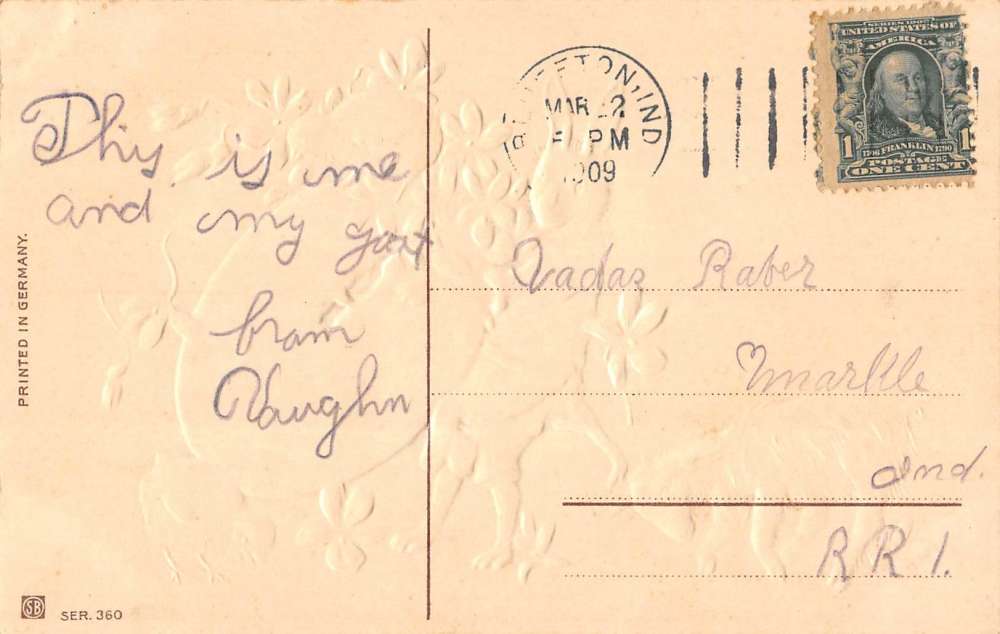 SERIES 1902
UNITED STATES OF
AMERICA
1 1
1706 FRANKLIN 1790
POSTAGE
ONE CENT
BLUFFTON, IND
MAR 2
PM
1909
This is me
and my goat
from
Vaughn
Vadaz Raber
Markle
Ind.
R R 1.
PRINTED IN GERMANY.
SB
SER. 360